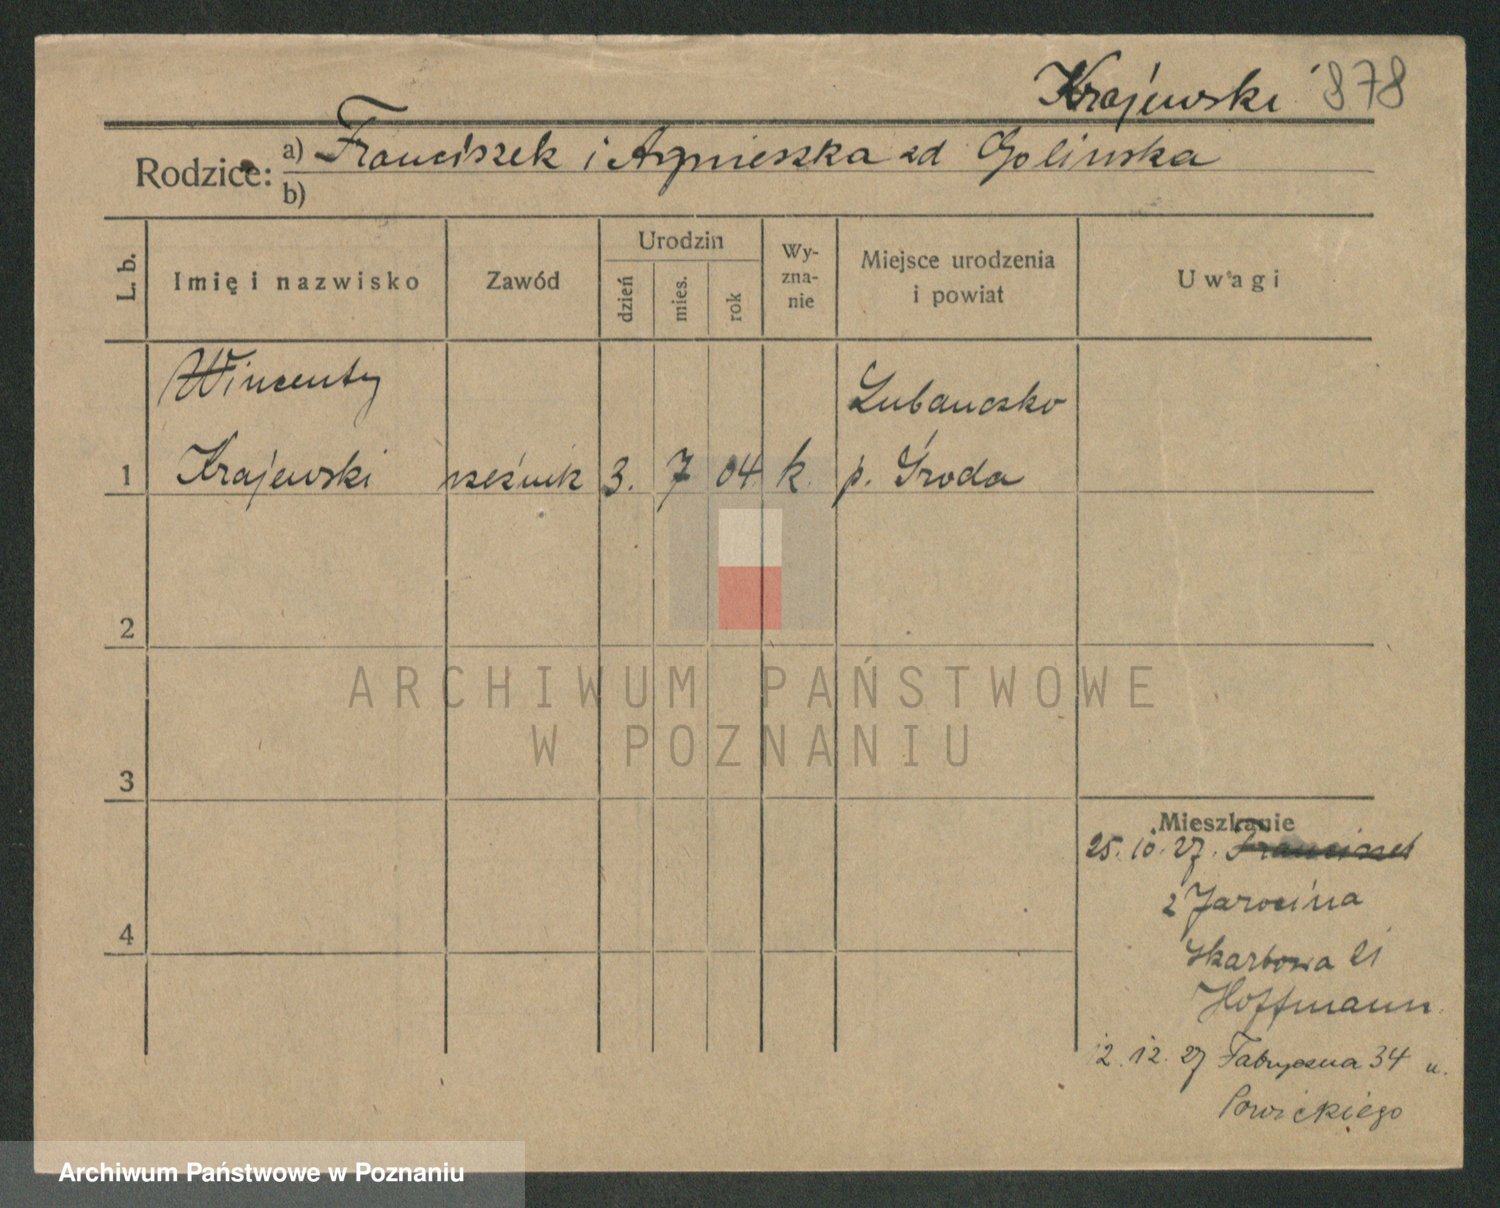 Krajewski 878
Rodzice: a) Franciszek i Agnieszka zd Golinska
b)
L. b. Imię i nazwisko Zawód Urodzin dzień mies. rok Wy-zna-nie Miejsce urodzenia i powiat Uwagi
Wincenty Lubauczko
1 Krajewski rzeźnik 3. 7 04 k. p. Środa
2
ARCHIWUM PAŃSTWOWE
W POZNANIU
3
Mieszkanie
25.10.27. Franciszek
z Jarocina
4
Skarbowa 21
Hoffmann.
12.12.27 Fabryczna 34 u.
Powickiego
Archiwum Państwowe w Poznaniu